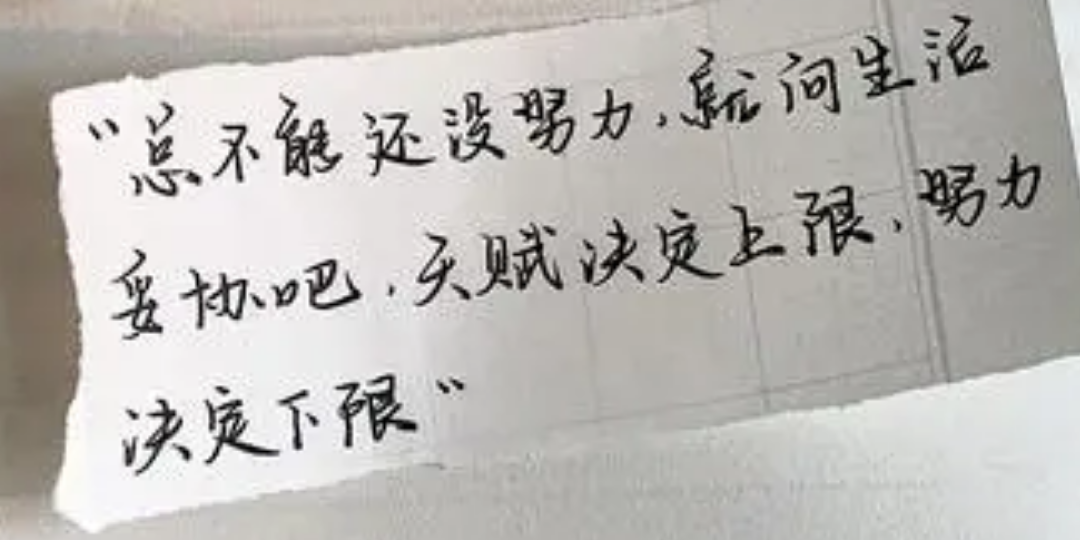 “总不能还没努力，就向生活
妥协吧，天赋决定上限，努力
决定下限”